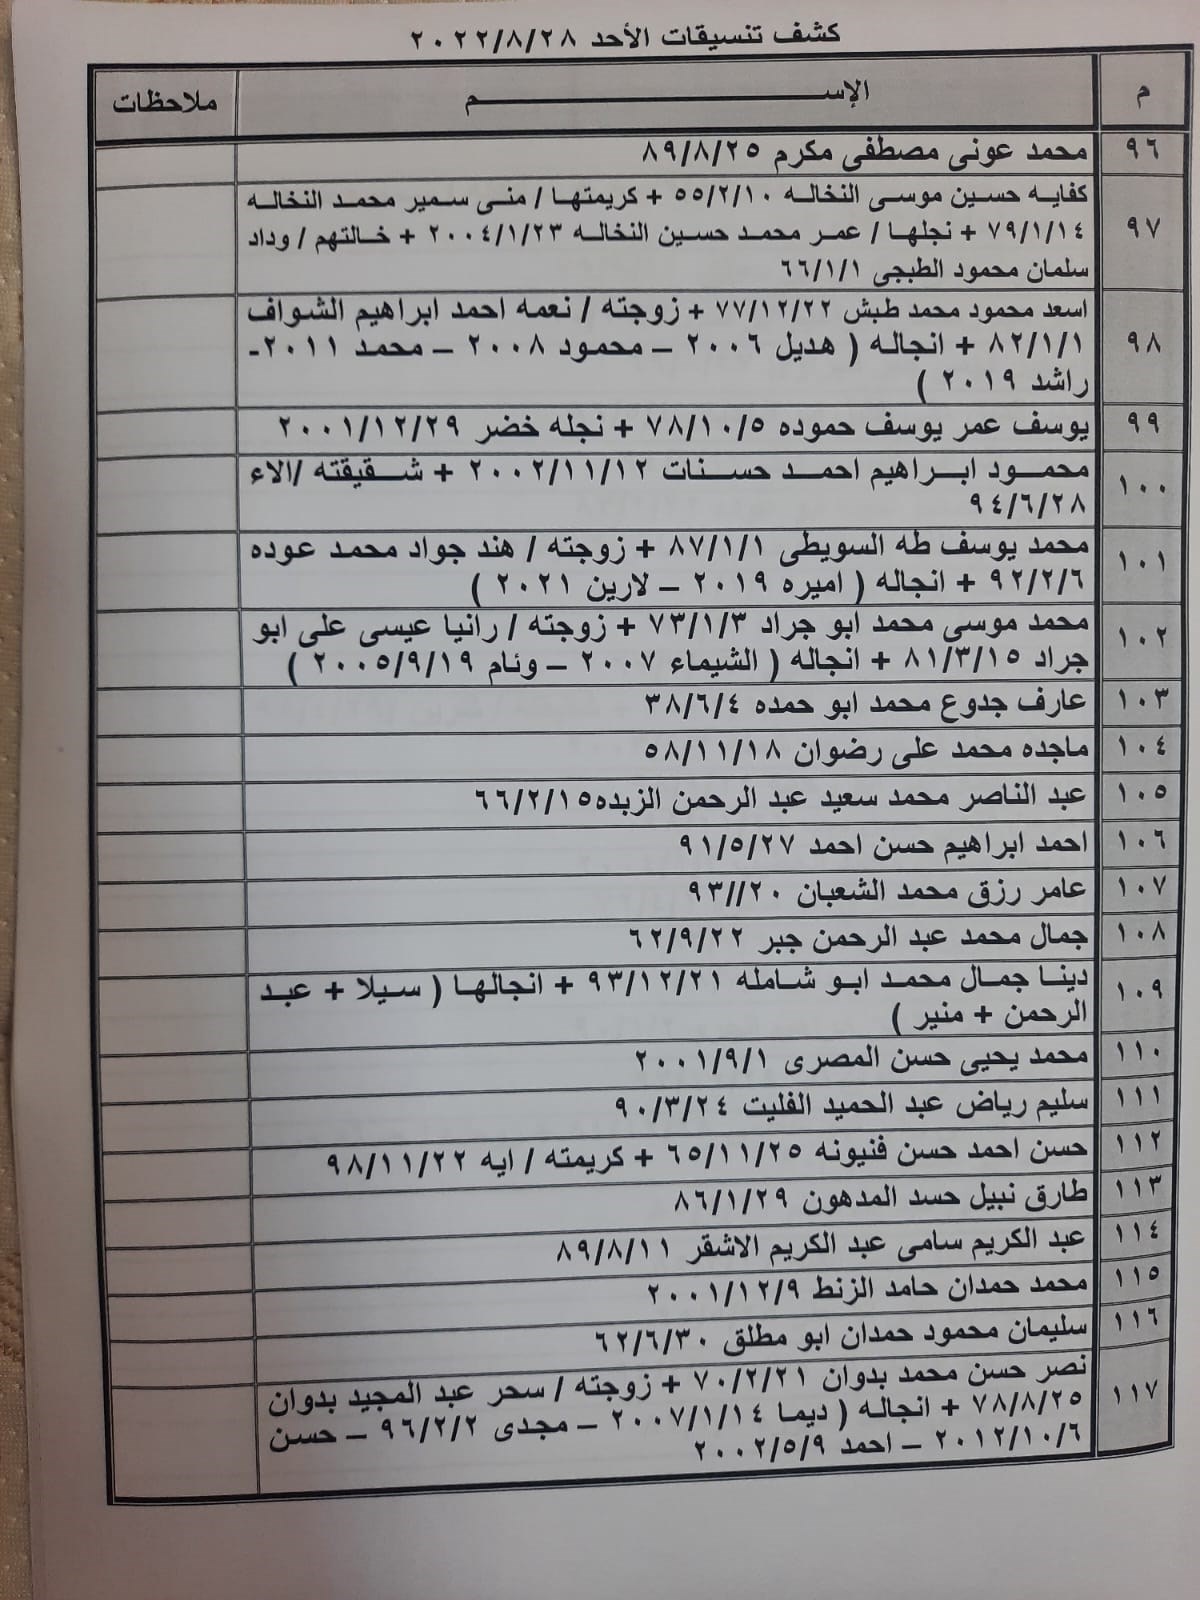 كشف تنسيقات الأحد ٢٠٢٢/٨/٢٨
م الإســـــــــــــم ملاحظات
٩٦ محمد عونى مصطفى مكرم ٨٩/٨/٢٥
٩٧ كفايه حسين موسى النخاله ٥٥/٢/١٠ + كريمتها / منى سمير محمد النخاله
٧٩/١/١٤ + نجلها / عمر محمد حسين النخاله ٢٠٠٤/١/٢٣ + خالتهم / وداد
سلمان محمود الطبجى ٦٦/١/١
٩٨ اسعد محمود محمد طبش ٧٧/١٢/٢٢ + زوجته / نعمه احمد ابراهيم الشواف
٨٢/١/١ + انجاله ( هديل ٢٠٠٦ – محمود ٢٠٠٨ – محمد ٢٠١١-
راشد ٢٠١٩ )
٩٩ يوسف عمر يوسف حموده ٧٨/١٠/٥ + نجله خضر ٢٠٠١/١٢/٢٩
١٠٠ محمود ابراهيم احمد حسنات ٢٠٠٢/١١/١٢ + شقيقته /الاء
٩٤/٦/٢٨
١٠١ محمد يوسف طه السويطى ٨٧/١/١ + زوجته / هند جواد محمد عوده
٩٢/٢/٦ + انجاله ( اميره ٢٠١٩ – لارين ٢٠٢١ )
١٠٢ محمد موسى محمد ابو جراد ٧٣/١/٣ + زوجته / رانيا عيسى على ابو
جراد ٨١/٣/١٥ + انجاله ( الشيماء ٢٠٠٧ – وئام ٢٠٠٥/٩/١٩ )
١٠٣ عارف جدوع محمد ابو حمده ٣٨/٦/٤
١٠٤ ماجده محمد على رضوان ٥٨/١١/١٨
١٠٥ عبد الناصر محمد سعيد عبد الرحمن الزبده٦٦/٢/١٥
١٠٦ احمد ابراهيم حسن احمد ٩١/٥/٢٧
١٠٧ عامر رزق محمد الشعبان ٩٣//٢٠
١٠٨ جمال محمد عبد الرحمن جبر ٦٢/٩/٢٢
١٠٩ دينا جمال محمد ابو شامله ٩٣/١٢/٢١ + انجالها ( سيلا + عبد
الرحمن + منير )
١١٠ محمد يحيى حسن المصرى ٢٠٠١/٩/١
١١١ سليم رياض عبد الحميد الفليت ٩٠/٣/٢٤
١١٢ حسن احمد حسن فنيونه ٦٥/١١/٢٥ + كريمته / ايه ٩٨/١١/٢٢
١١٣ طارق نبيل حسد المدهون ٨٦/١/٢٩
١١٤ عبد الكريم سامى عبد الكريم الاشقر ٨٩/٨/١١
١١٥ محمد حمدان حامد الزنط ٢٠٠١/١٢/٩
١١٦ سليمان محمود حمدان ابو مطلق ٦٢/٦/٣٠
١١٧ نصر حسن محمد بدوان ٧٠/٢/٢١ + زوجته / سحر عبد المجيد بدوان
٧٨/٨/٢٥ + انجاله ( ديما ٢٠٠٧/١/١٤ – مجدى ٩٦/٢/٢ – حسن
٢٠١٢/١٠/٦ – احمد ٢٠٠٢/٥/٩